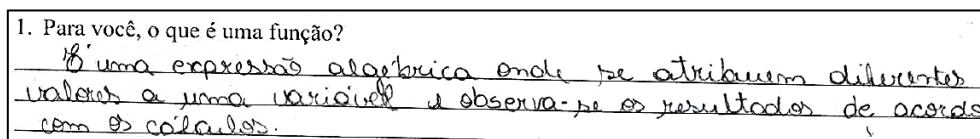 1. Para você, o que é uma função?
É uma expressão algébrica onde se atribuem diferentes
valores a uma variável e observa-se os resultados de acordo
com os cálculos.